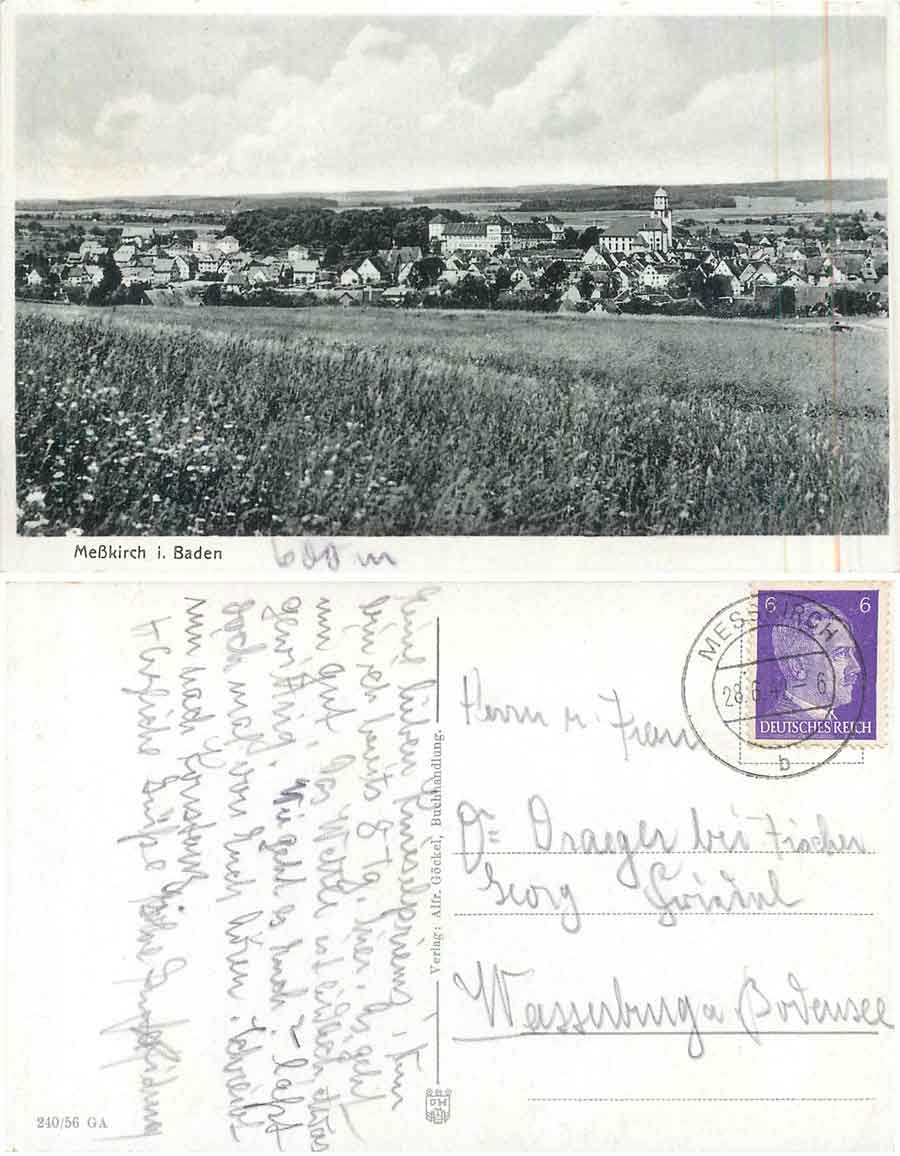 Meßkirch i. Baden
600 m
MESSKIRCH
28.6.4 - 6
b
6 6
DEUTSCHES REICH
Herrn u. Frau
Dr. Draeger bei Fischer
Georg
Wasserburg a Bodensee
Verlag: Alfr. Göckel, Buchhandlung.
240/56 GA
Ihr lieben, nun
bin ich heute 8 Tg. hier. Es geht
mir gut. Das Wetter ist etwas
gewittrig. Wie geht es Euch? - laßt
doch mal von Euch hören. Schreibt
nun nach
Herzliche Grüße